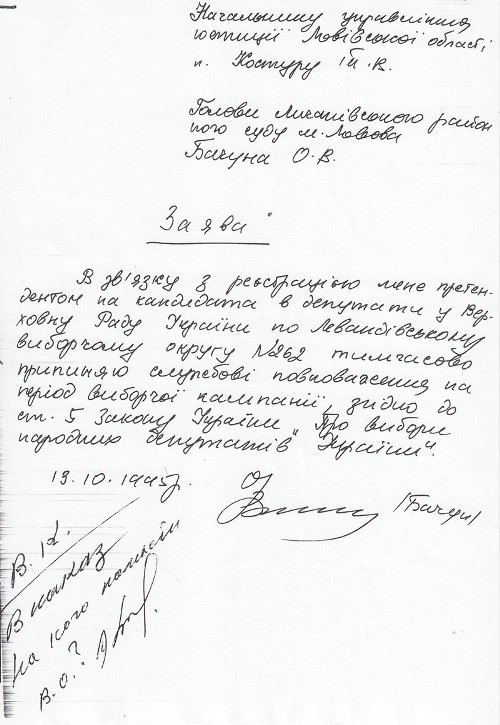 Начальнику управління
юстиції Львівської області
п. Костуру
Голови Личаківського район
ного суду м. Львова
Бачуна О.В.
Заява
В зв'язку з реєстрацією мене претен-
дентом на кандидата в депутати у Вер-
ховну Раду України по Левандівському
виборчому округу №262 тимчасово
припиняю службові повноваження на
період виборчої кампанії, згідно до
ст. 5 Закону України „Про вибори
народних депутатів України".
19.10.1995р.
/Бачун/
В наказ
На кого
в.о.?